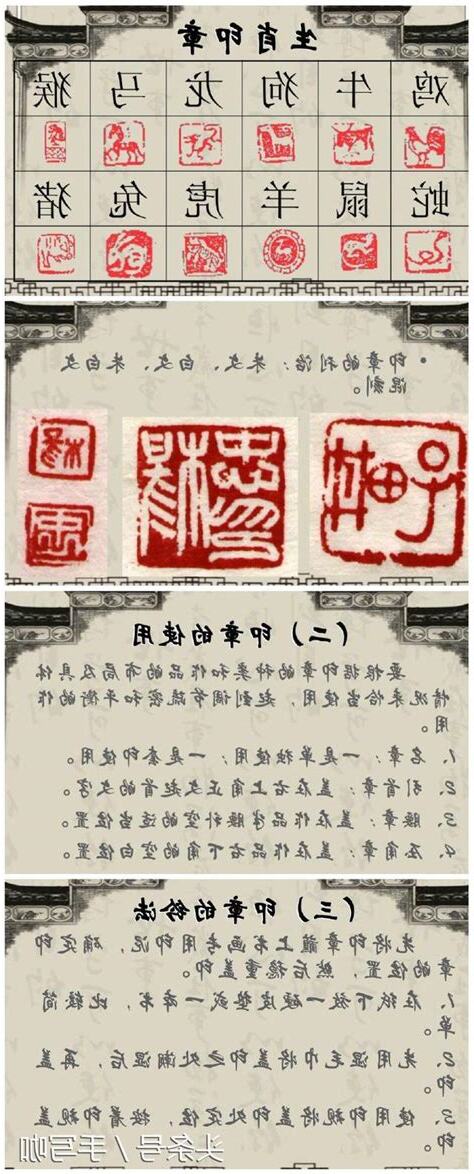 生肖印章
鸡 牛 狗 龙 马 猴
蛇 鼠 羊 虎 兔 猪
• 印章的利治：朱文、白文、朱白文
混刻。
（二）印章的使用
要根据印章的种类和作品的布局及具体
情况来恰当使用，起到调节疏密和平衡的作
用。
1、名章：一是单独使用；一是套印使用。
2、引首章：盖在右上角正文起首的文字。
3、腰章：盖在作品半腰补空的适当位置。
4、压角章：盖在作品右下角的空白位置。
（三）印章的钤法
先将印章蘸上书画专用印泥，确定印
章的位置，然后稳重盖印。
1、在纸下放一硬皮垫或一本书，比较简
单。
2、先用湿毛巾将盖印之处潮湿后，再盖
印。
3、使用印规将盖印处定位，按着印规盖
印。
头条号/手写咖